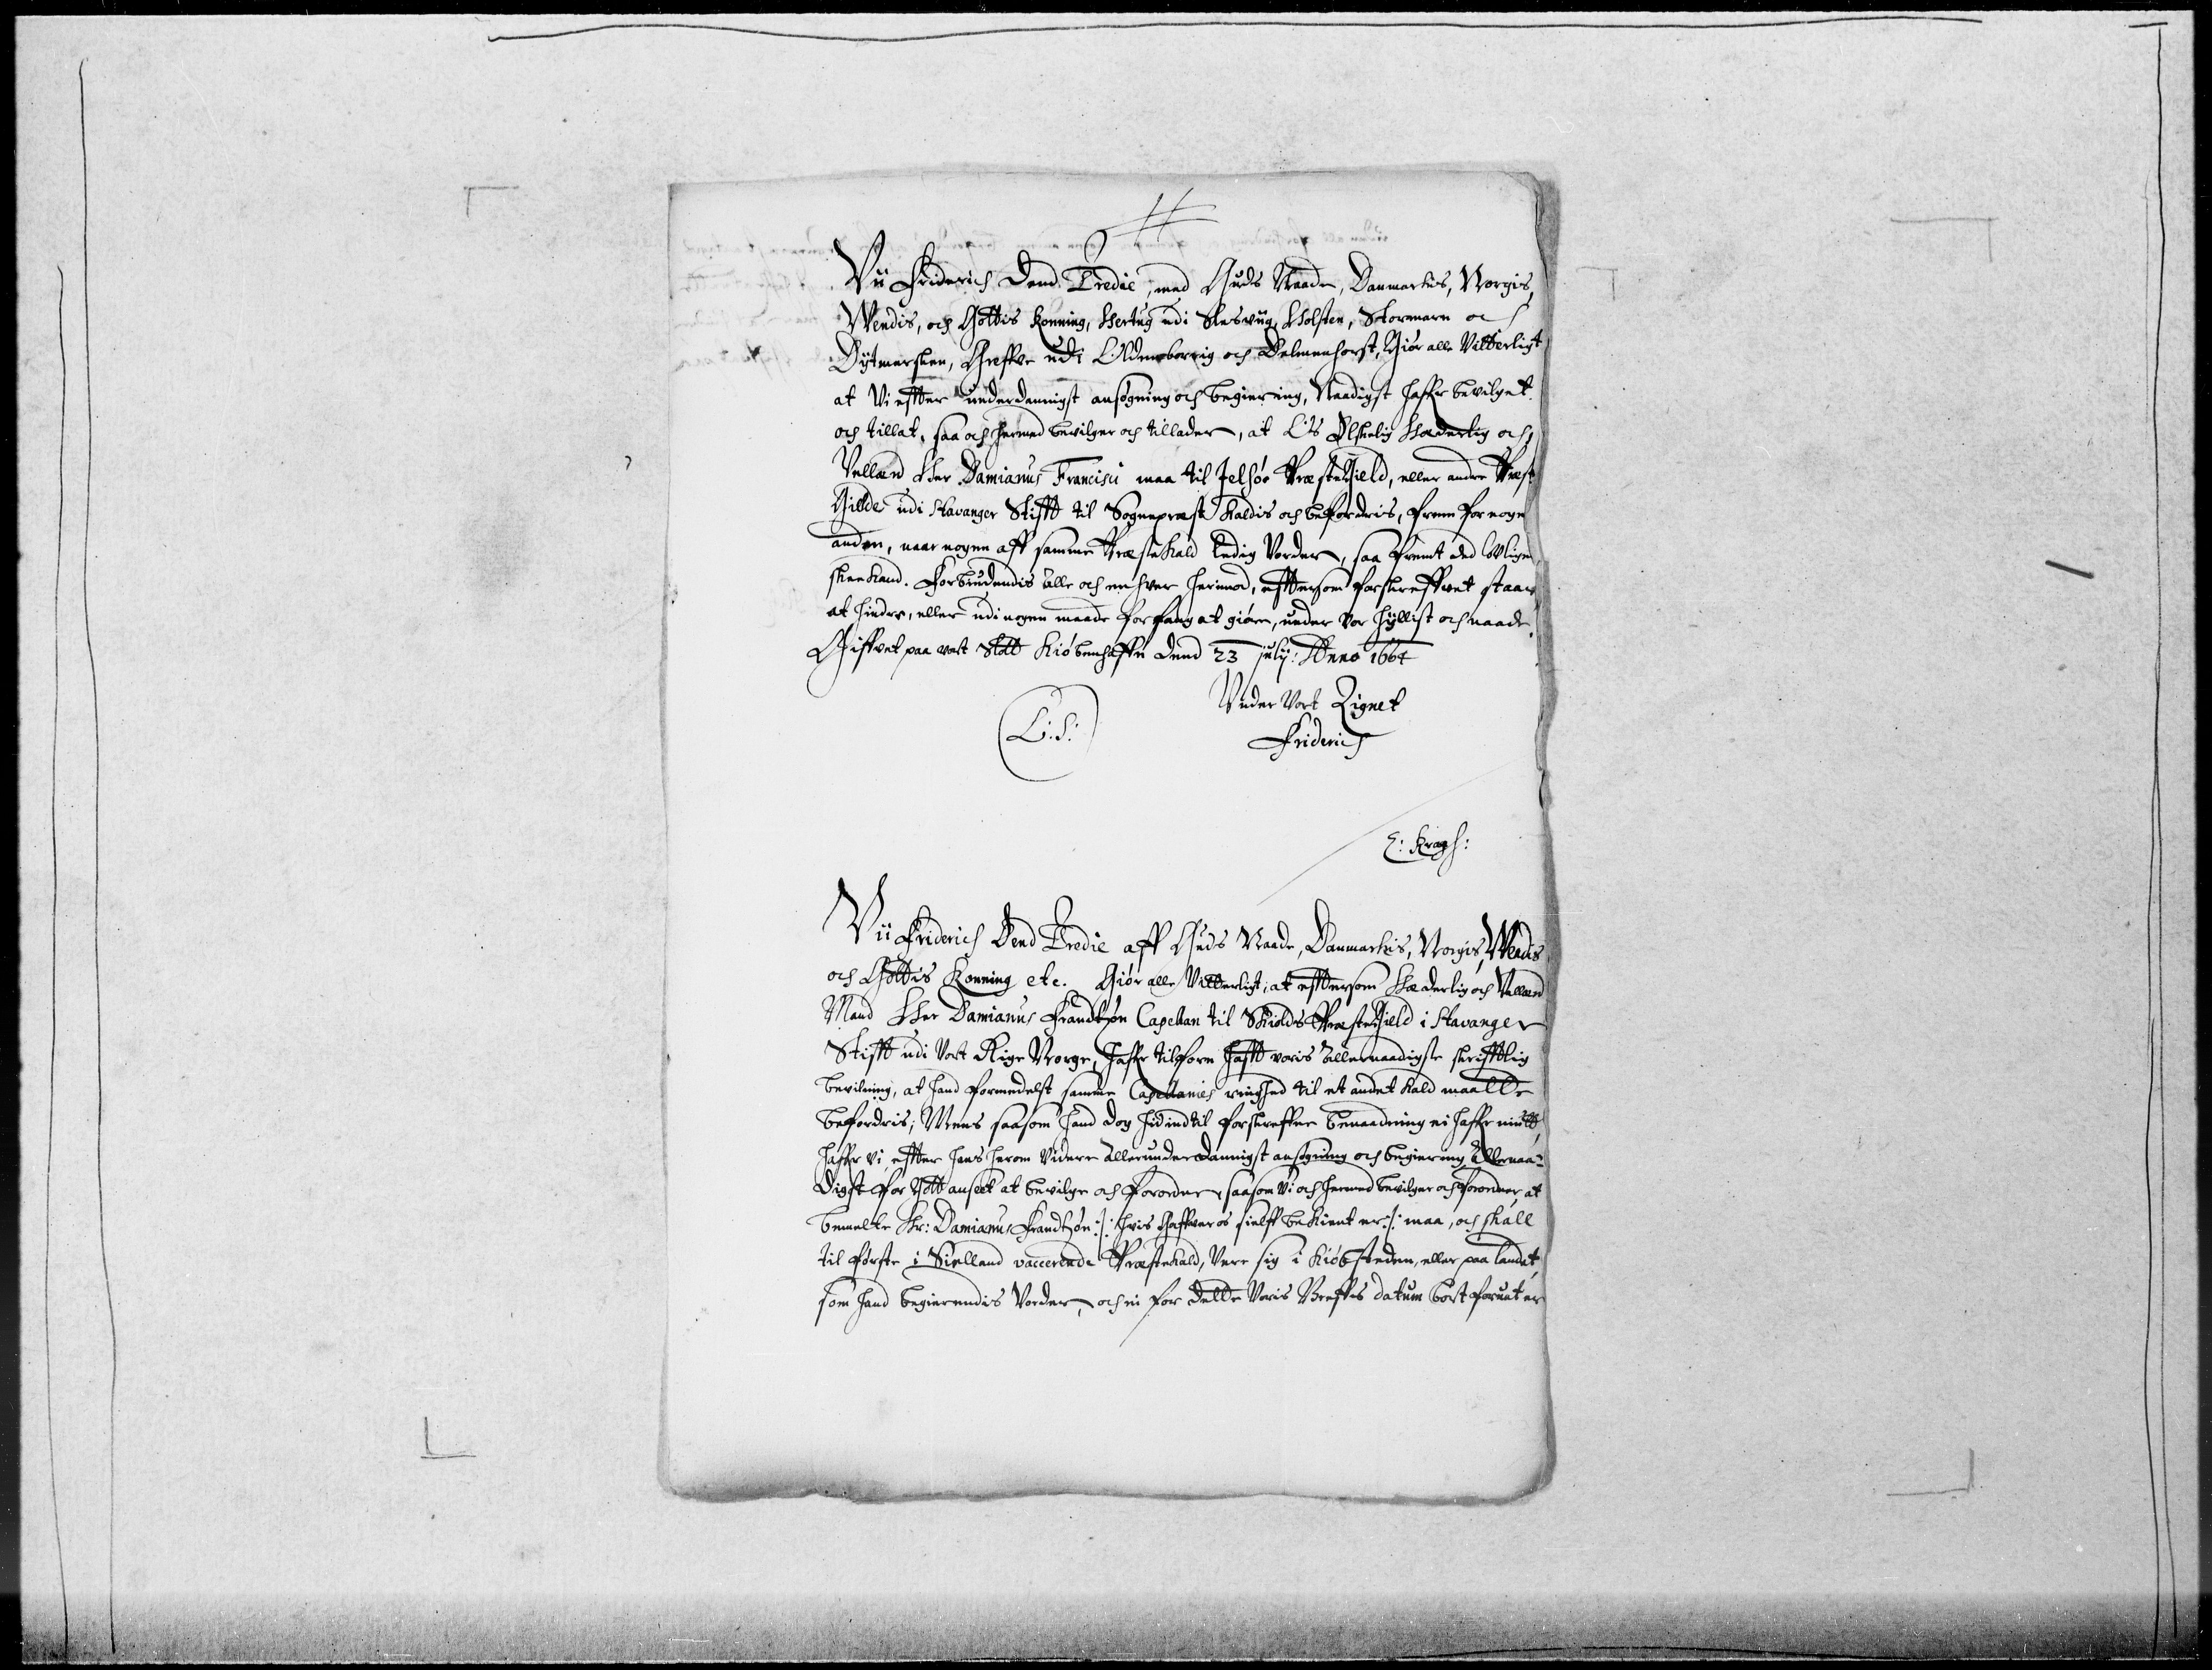 Vii Friderich Dend Tredie, med Guds Naade, Danmarkis, Norgis,
Wendis, och Gottis Konning, Hertug udi Slesvig, Holsten, Stormarn och
Dytmersken, Greffve udi Oldenborrig och Delmenhorst, Giør alle Vitterligt,
at Vi effter underdannigst ansøgning och begiering, Naadigst haffr bevilget
och tillat, saa och hermed bevilger och tillader, at Os Elskelig Hæderlig och
Vellærd Her Damianus Francisci maa til Jelsøe PræsteGield, eller andre Præste
Gielde udi Stavanger Stifft til Sognepræst Kaldis och befordris, frem for nogen
anden, naar nogen aff samme Præstekald ledig Vorder, saa fremt ded lovligen
skee kand. Forbiudendis alle och en hver herimod, efftersom forskreffvet staar
at hindre, eller udi nogen maade forfang at giøre, under vor hyllist och naade.
Giffvet paa vort Slott Kiøbenhaffn dend 23 July: Anno 1664
Under Vort Zignet
L: S:
Friderich
E: Kragh:
Vii Friderich Dend Tredie aff Guds Naade, Danmarkis, Norgis, Wendis
och Gottis Konning etc. Giør alle Vitterligt, at efftersom Hæderlig och Vellærd
Mand Her Damianus Frandtzøn Capellan til Skiolds PræsteGield i Stavanger
Stifft udi Vort Rige Norge, haffr tilforn hafft voris allernaadigste skrifftlig
bevilning, at hand formedelst samme Capellanies ringhed til et andet Kald maatte
befordris; Mens saasom hand dog hid indtil forskreffne benaadning ei haffr nutt,
haffr vi, effter hans herom Videre allerunderdannigst ansøgning och begiering, allernaa-
digst for Gott anseet at bevilge och forordne, saasom Vi och hermed bevilger och forordner, at
bemelte Hr: Damianus Frandtzøn :/: hvis Gaffver os sielff bekient er :/: maa, och skall
til første i Sielland vaccerende Præstekald, Være sig i Kiøbsteden, eller paa landet,
som hand begierendis Vorder, och ei for dette Voris Breffvs datum bort foruet er